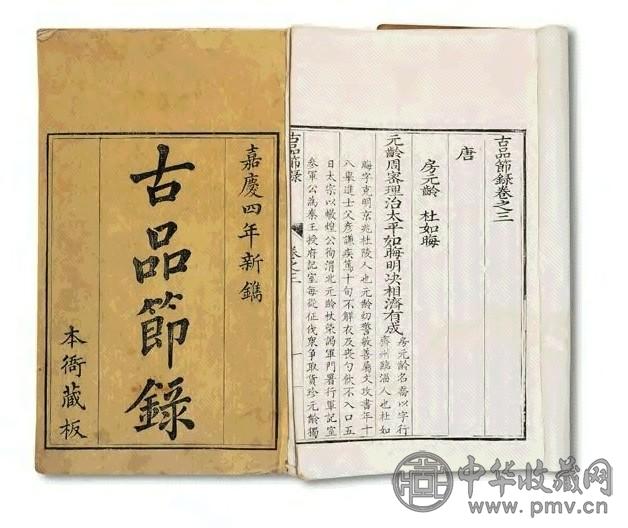 嘉慶四年新鐫
古品節錄
本衙藏板
古品節錄卷之三
唐
房元齡 杜如晦
元齡周密理治太平如晦明决相濟有成
房元齡名喬以字行
齊州臨淄人也杜如
晦字克明京兆杜陵人也元齡幼警敏善屬文攻書年十
八舉進士父彥謙疾篤十旬不解衣及喪勺飲不入口五
日太宗以燉煌公徇渭北元齡杖策謁軍門署行軍記室
叅軍公爲秦王授府記室每從征伐衆爭取貨珍元齡獨
古品節錄
卷之三
一
中华收藏网
www.pmv.cn